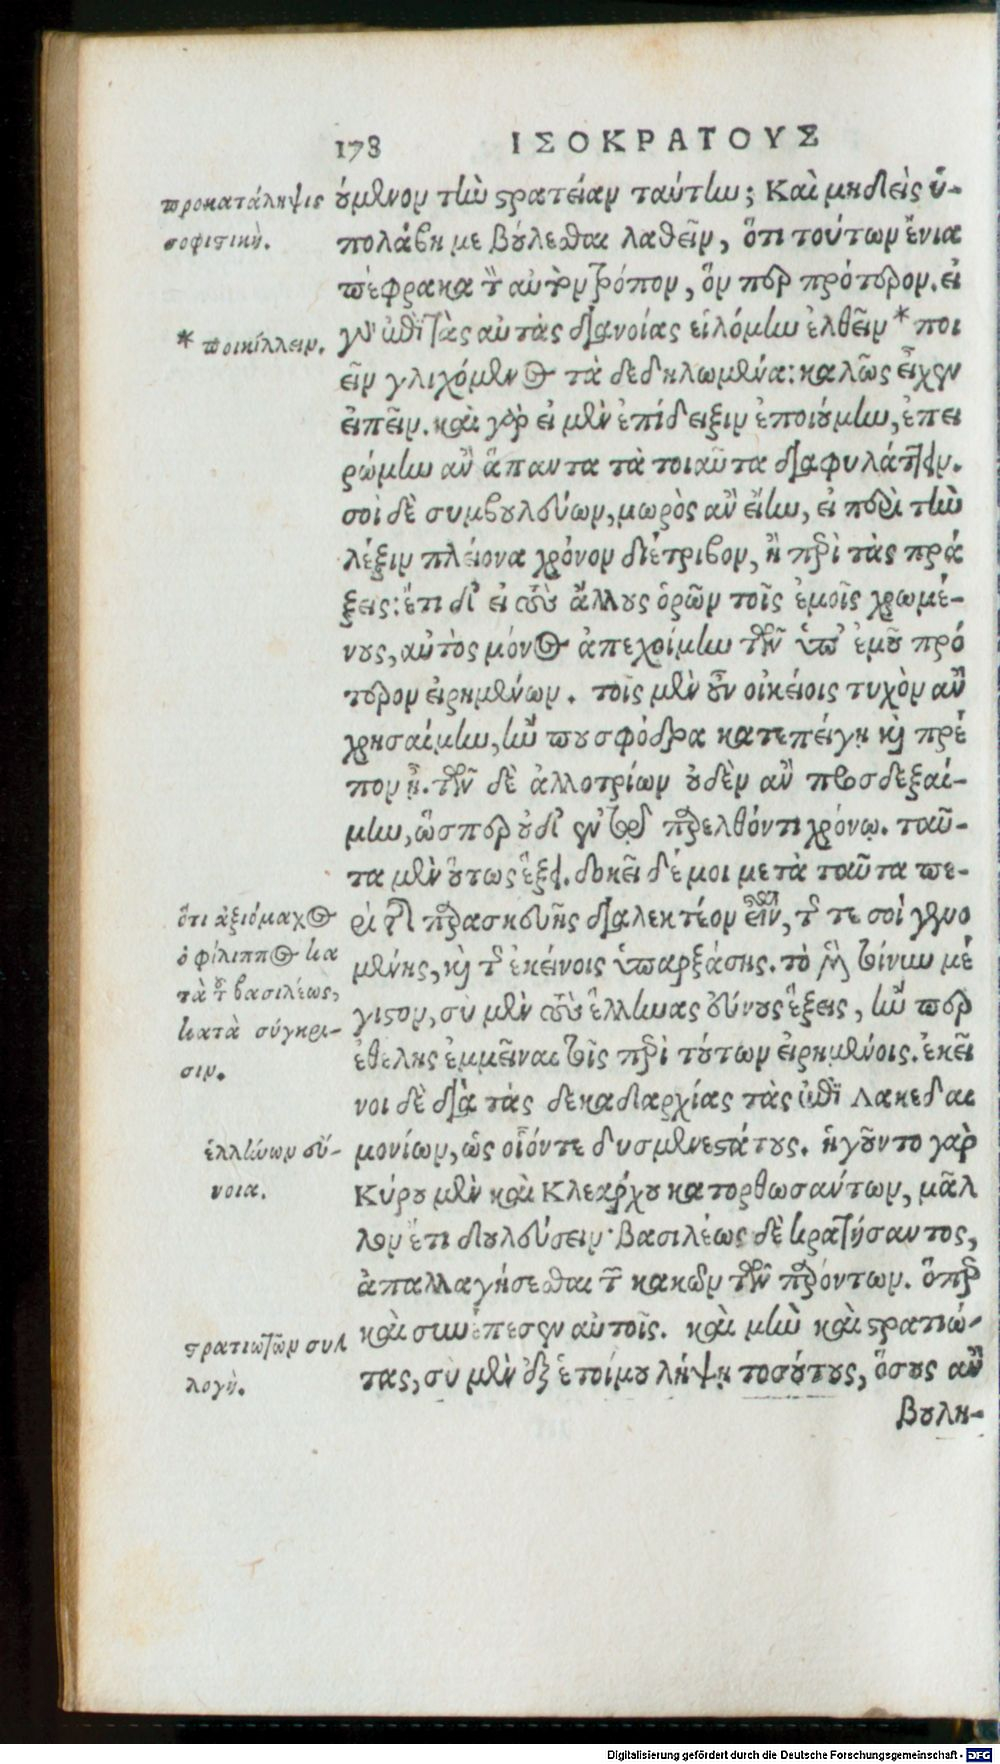 178 ΙΣΟΚΡΑΤΟΥΣ
προκατάληψις
σοφιστική.
* ποικίλλειν.
ούμενον τὴν στρατείαν ταύτην; Καὶ μηδεὶς ὑ-
πολάβῃ με βούλεσθαι λαθεῖν, ὅτι τούτων ἔνια
πέφρακα τὸν αὐτὸν τρόπον, ὅν περ πρότερον. εἰ
γὰρ ἐπὶ τὰς αὐτὰς διανοίας εἱλόμην ἐλθεῖν * ποι
εῖν γλιχόμενος τὰ δεδηλωμένα: καλῶς εἶχεν
εἰπεῖν. καὶ γὰρ εἰ μὲν ἐπίδειξιν ἐποιούμην, ἐπει
ρώμην ἂν ἅπαντα τὰ τοιαῦτα διαφυλάττειν.
σοὶ δὲ συμβουλεύων, μωρὸς ἂν εἴην, εἰ περὶ τὴν
λέξιν πλείονα χρόνον διέτριβον, ἢ περὶ τὰς πρά
ξεις: ἔτι δ' εἰ τοὺς ἄλλους ὁρῶν τοῖς ἐμοῖς χρωμέ-
νους, αὐτὸς μόνος ἀπεχοίμην τῶν ὑπ' ἐμοῦ πρό
τερον εἰρημένων. τοῖς μὲν οὖν οἰκείοις τυχὸν ἂν
χρησαίμην, ἤν που σφόδρα κατεπείγῃ καὶ πρέ
πον ᾖ. τῶν δὲ ἀλλοτρίων οὐδὲν ἂν προσδεξαί-
μην, ὥσπερ οὐδ' ἐν τῷ παρελθόντι χρόνῳ. ταῦ-
τα μὲν οὕτως ἕξει. δοκεῖ δέ μοι μετὰ ταῦτα πε-
ρὶ τῆς παρασκευῆς διαλεκτέον εἶναι, τῆς τε σοὶ γενο
μένης, καὶ τῆς ἐκείνοις ὑπαρξάσης. τὸ μὲν τοίνυν μέ
γιστον, σὺ μὲν τοὺς ἕλληνας εὔνους ἕξεις, ἤν περ
ἐθέλῃς ἐμμεῖναι τοῖς περὶ τούτων εἰρημένοις. ἐκεῖ
νοι δὲ διὰ τὰς δεκαδαρχίας τὰς ἐπὶ Λακεδαι
μονίων, ὡς οἷόντε δυσμενεστάτους. ἡγοῦντο γὰρ
Κύρου μὲν καὶ Κλεάρχου κατορθωσάντων, μᾶλ
λον ἔτι δουλεύσειν· βασιλέως δὲ κρατήσαντος,
ἀπαλλαγήσεσθαι τῶν κακῶν τῶν παρόντων. ὅπερ
καὶ συνέπεσεν αὐτοῖς. καὶ μὴν καὶ στρατιώ-
τας, σὺ μὲν ἐξ ἑτοίμου λήψῃ τοσούτους, ὅσους ἂν
βουλη-
ὅτι ἀξιόμαχος
ὁ φίλιππος κα
τὰ τοῦ βασιλέως,
κατὰ σύγκρι-
σιν.
ἑλλήνων εὔ-
νοια.
στρατιωτῶν συλ
λογή.
Digitalisierung gefördert durch die Deutsche Forschungsgemeinschaft - DFG